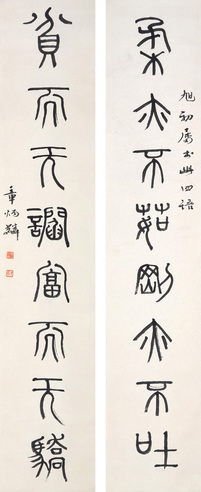 旭初屬書此四語
柔亦不茹剛亦不吐
貧而无諂富而无驕
章炳麟